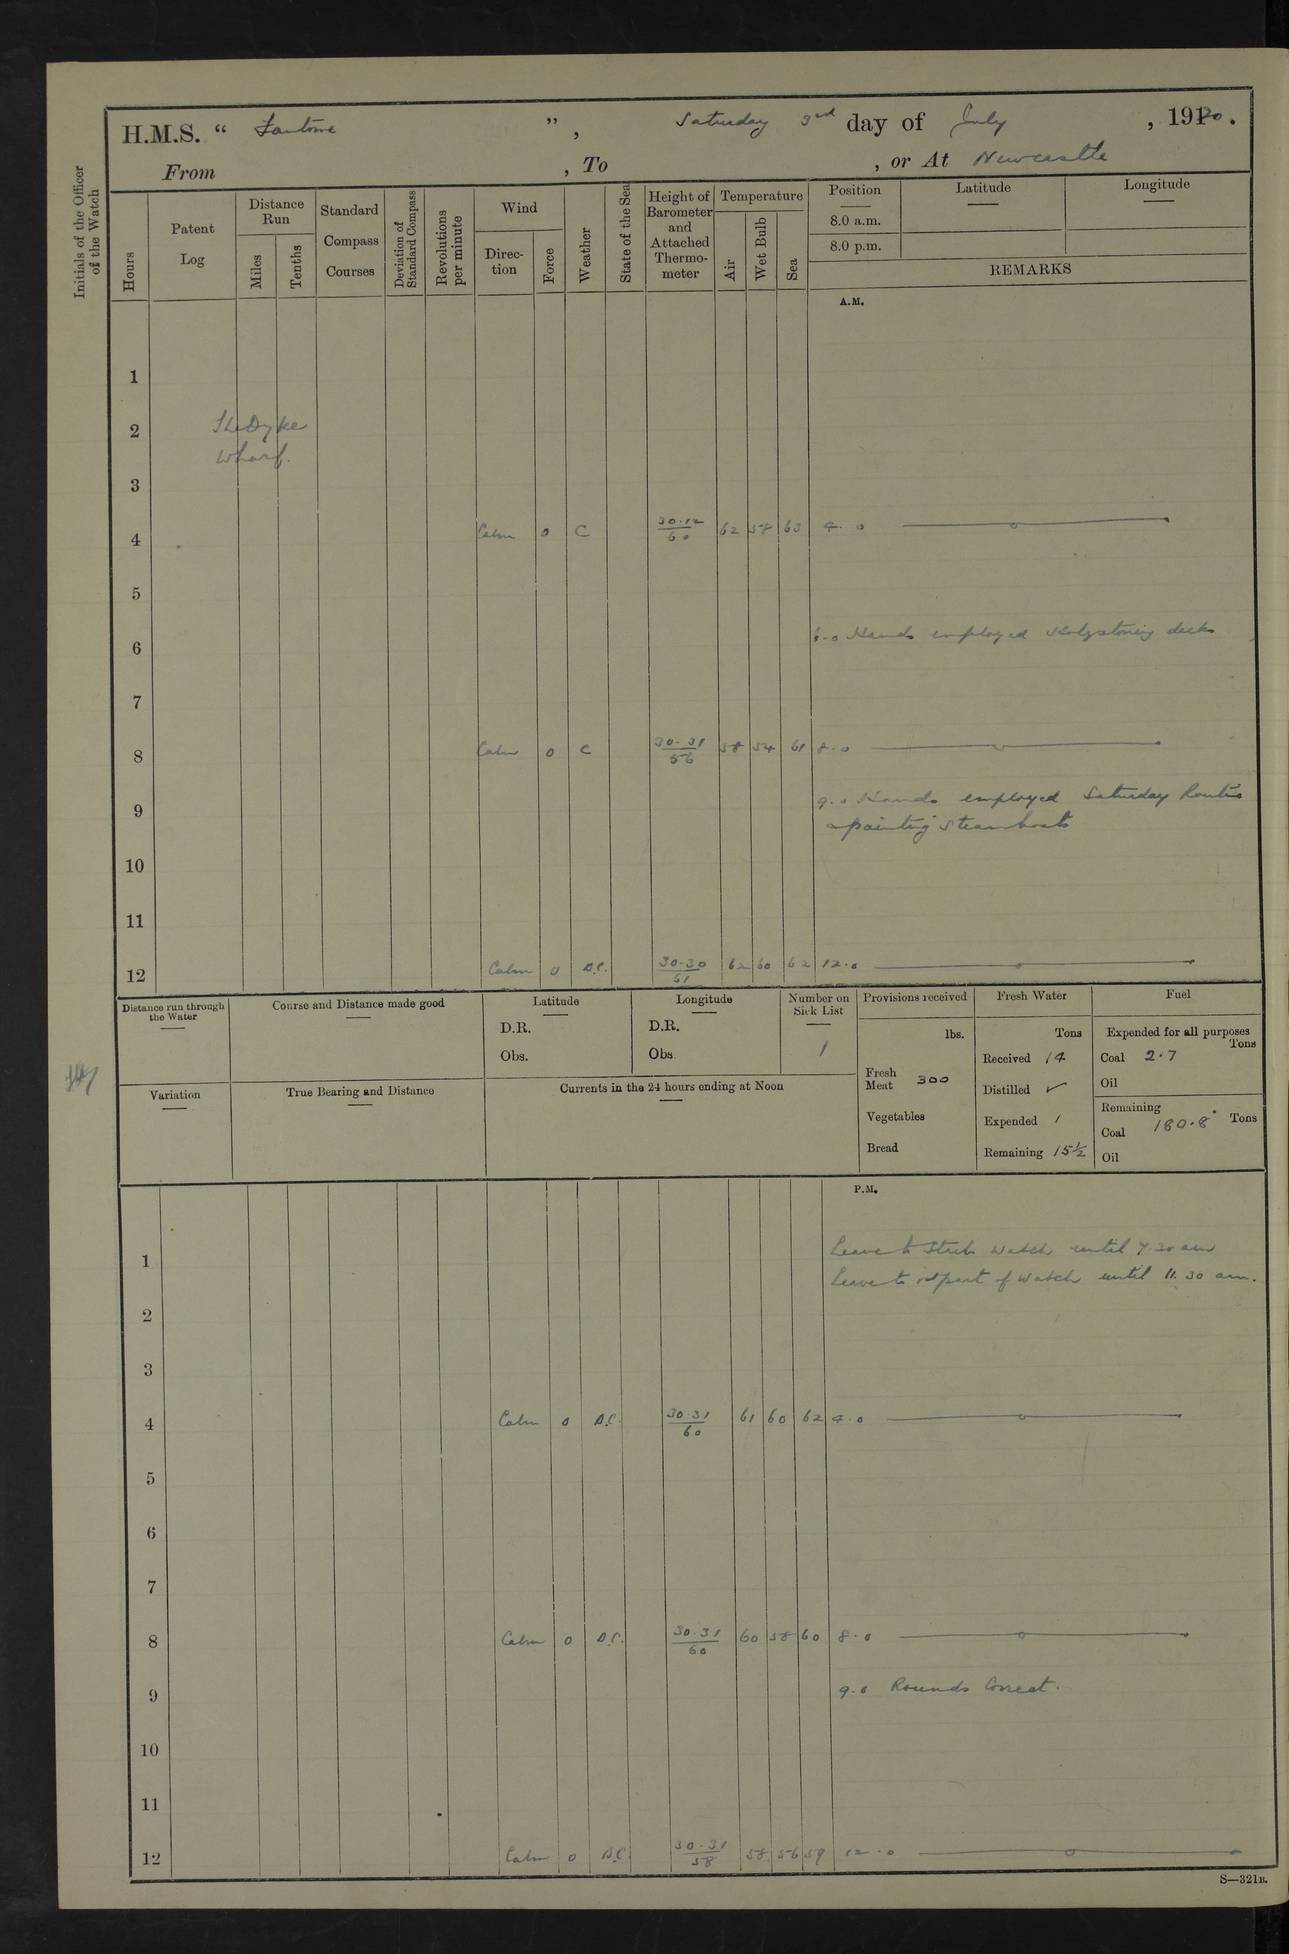 H.M.S. " Fantome ", Saturday 3rd day of July , 1920.
From , To , or At Newcastle
Initials of the Officer of the Watch
Hours
Patent Log
Distance Run
Miles
Tenths
Standard Compass Courses
Deviation of Standard Compass
Revolutions per minute
Wind
Direc-tion
Force
Weather
State of the Sea
Height of Barometer and Attached Thermo-meter
Temperature
Air
Wet Bulb
Sea
Position
Latitude
Longitude
8.0 a.m.
8.0 p.m.
REMARKS
A.M.
1
2
The Dyke
Wharf.
3
4 Calm 0 C 30.12/60 62 58 63 4.0
5
6 6.0 Hands employed Holystoning decks
7
8 Calm 0 C 30.31/56 58 54 61 8.0
9 9.0 Hands employed Saturday Routine
painting steamboats
10
11
12 Calm 0 B.C. 30.30/61 62 60 62 12.0
Distance run through the Water
Course and Distance made good
Latitude
D.R.
Obs.
Longitude
D.R.
Obs
Number on Sick List
1
Provisions received
lbs.
Fresh Meat 300
Vegetables
Bread
Fresh Water
Tons
Received 14
Distilled ✓
Expended 1
Remaining 15½
Fuel
Expended for all purposes
Tons
Coal 2.7
Oil
Remaining
Coal 180.8 Tons
Oil
Variation
True Bearing and Distance
Currents in the 24 hours ending at Noon
P.M.
1 Leave to Starb watch until 7.30 am
Leave to 1st part of watch until 11.30 am.
2
3
4 Calm 0 B.C. 30.31/60 61 60 62 4.0
5
6
7
8 Calm 0 B.C. 30.31/60 60 58 60 8.0
9 9.0 Rounds Correct.
10
11
12 Calm 0 B.C. 30.31/58 58 56 59 12.0
S—321B.